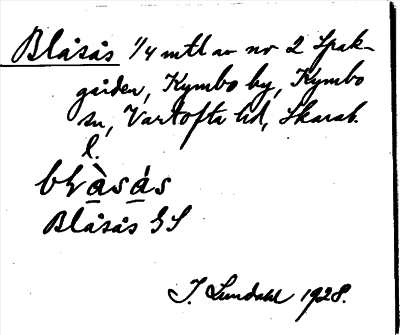 Blåsås 1/4 mtl av nr 2 Spak-
gården, Kymbo by, Kymbo
sn, Vartofta hd, Skarab.
l.
Blåsås GS
J. Lundahl 1928.